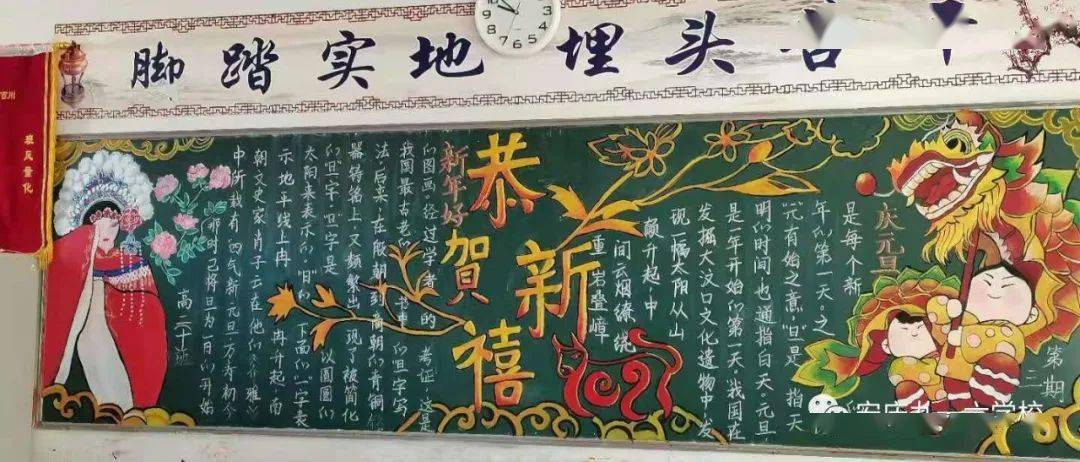 脚踏实地 埋头苦干
班风量化
恭
賀
新
禧
新年好
庆元旦
是每个新
年的第一天。之
"元"有始之意"旦"是指天
明的时间也通指白天。元旦
是一年开始的第一天"我国在
发掘大汶口文化遗物中发
现一幅太阳从山
颠升起,中
间云烟缭绕
重岩叠嶂
的图画。经过学者的考证 这是
我国最古老的
旦字写
法后来,在殷朝到商朝的青铜
器铭上,又频繁出现了被简化
的"旦"字"旦"字是以圆圆的
太阳来表示的"日"下面的"一"字表
示地平线上冉冉升起,南
朝文史家肖子云在他们《介雅》
中所载有"四气新元旦万寿初今
那时已将旦为一日的开始
高二十班
第
期